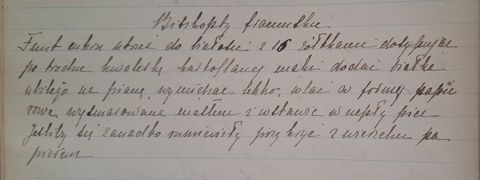 Biszkopty francuskie.
Funt cukru utrzeć do białości z 16 żółtkami dosypując
po trochu kwaterkę kartoflanej mąki dodać białka
ubitego na pianę wymieszać lekko, wlać w formy papie
rowe, wysmarowane masłem i wstawić w ciepły piec
Jeśliby się zanadto rumieniły przykryć z wierzchu pa
pierem